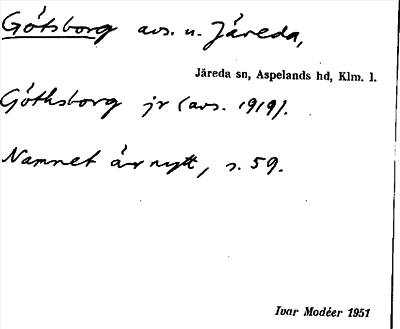 Götsborg avs. u. Järeda,
Järeda sn, Aspelands hd, Klm. l.
Göthsborg jr (avs. 1919).
Namnet är nytt, s. 59.
Ivar Modéer 1951